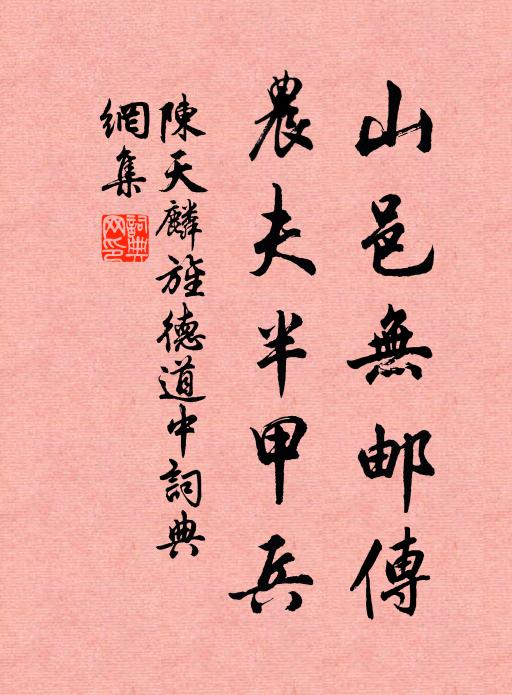 山邑無邮傳
農夫半甲兵
陳天麟旌德道中詞典
網集
詞典網印